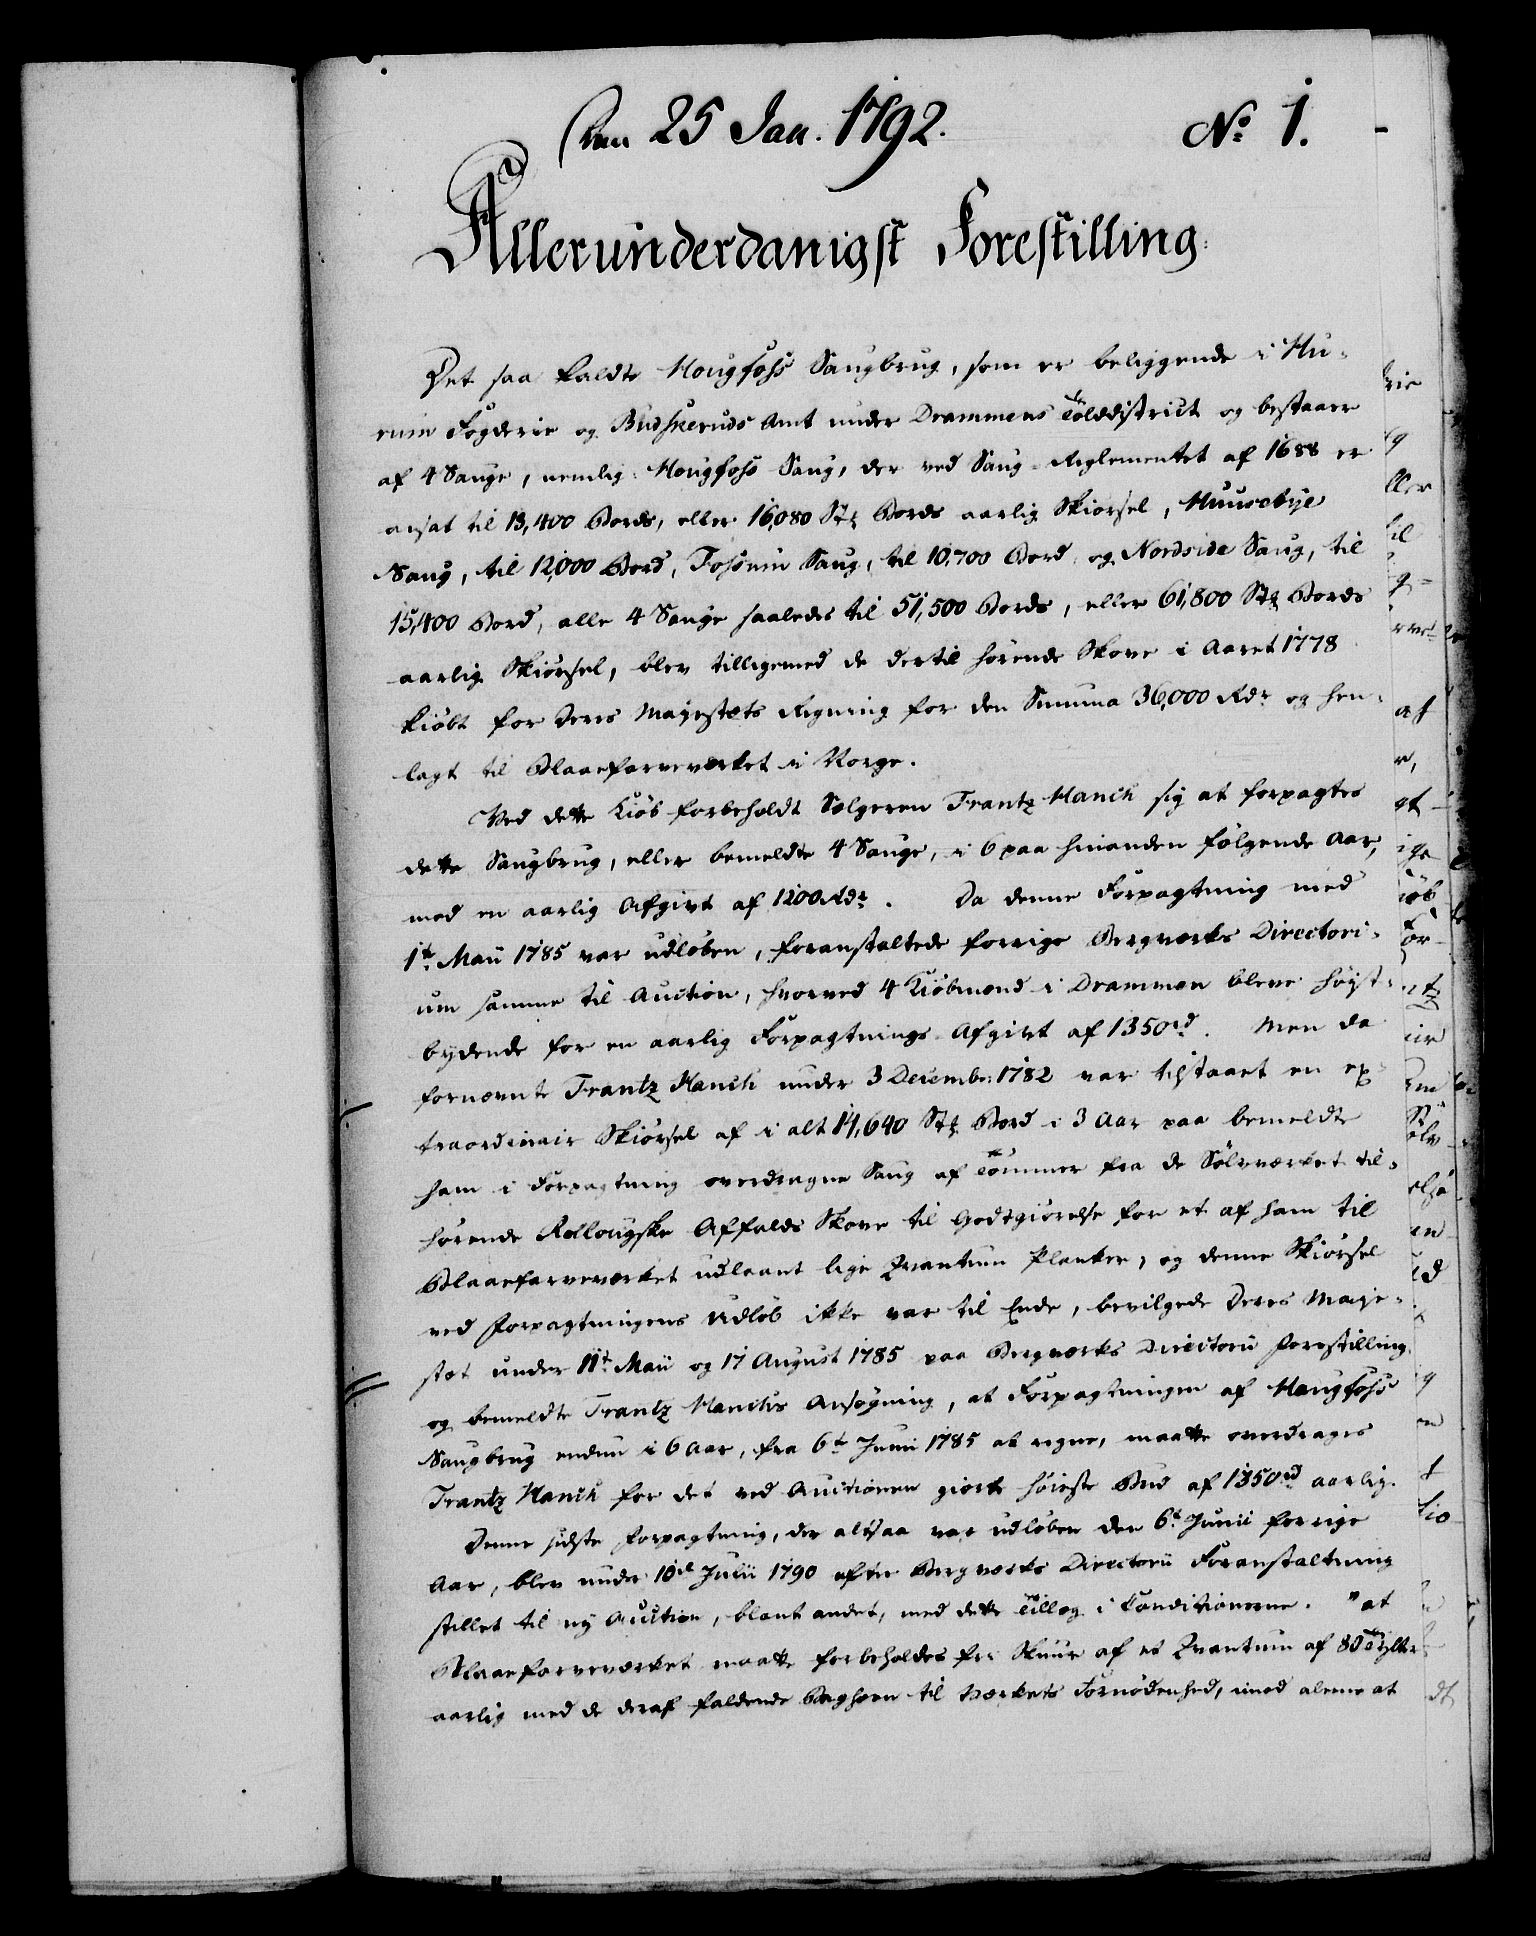 Den 25 Jan. 1792. No 1.
Allerunderdanigst Forestilling.
Det saa kaldte Hougfoss Saugbrug, som er beliggende i Hu-
rum Fogderie og Budskeruds Amt under Drammens Tolddistrict og bestaaer
af 4 Sauge, nemlig: Hougfoss Saug, der ved Saug-Reglementet af 1688 er
ansat til 13,400 Bords, eller 16,080 Stk Bords aarlig Skiørsel, Huusebye
Saug, til 12,000 Bord, Fossum Saug, til 10,700 Bord, og Nordside Saug, til
15,400 Bord, alle 4 Sauge saaledes til 51,500 Bords, eller 61,800 Stk Bords
aarlig Skiørsel, blev tilligemed de dertil hørende Skove i Aaret 1778
kiøbt for Deres Majestæts Regning for den Summa 36,000 Rdr og hen-
lagt til Blaaefarveværket i Norge.
Ved dette Kiøb forbeholdt Selgeren Frantz Hanch sig at forpagte
dette Saugbrug, eller bemeldte 4 Sauge, i 6 paa hinanden følgende Aar,
mod en aarlig Afgivt af 1200 Rdr. Da denne Forpagtning med
1te Maii 1785 var udløben, foranstaltede forrige Bergværks Directori-
um samme til Auction, hvorved 4 Kiøbmænd i Drammen bleve høyst-
bydende for en aarlig Forpagtnings Afgivt af 1350 rd. Men da
fornævnte Frantz Hanch under 3 Decembr: 1782 var tilstaaet en ex-
traordinair Skiørsel af i alt 14,640 Stk Bord i 3 Aar paa bemeldte
ham i Forpagtning overdragne Saug af Tømmer fra de Sølvværket til-
hørende Rollougske Affalds Skove til Godtgiørelse for et af ham til
Blaaefarveværket udlaant lige Qvantum Planker, og denne Skiørsel
ved Forpagtningens Udløb ikke var til Ende, bevilgede Deres Maje-
stæt under 11te Maii og 17 August 1785 paa Bergværks Directorii Forestilling
og bemeldte Frantz Hanchs Ansøgning, at Forpagtningen af Hougfoss
Saugbrug endnu i 6 Aar, fra 6te Junii 1785 at regne, maatte overdrages
Frantz Hanch for det ved Auctionen giorte høieste Bud af 1350 rd aarlig.
Denne sidste Forpagtning, der altsaa var udløben den 6te Junii forrige
Aar, blev under 10de Julii 1790 efter Bergværks Directorii Foranstaltning
stillet til ny Auction, blant andet, med dette Tillæg i Conditionerne. "at
Blaaefarveværket maatte forbeholdes fri Skuur af et Qvantum af 80 Tylter
aarlig med de deraf faldende Baghoen til Værkets Fornødenhed, imod alene at